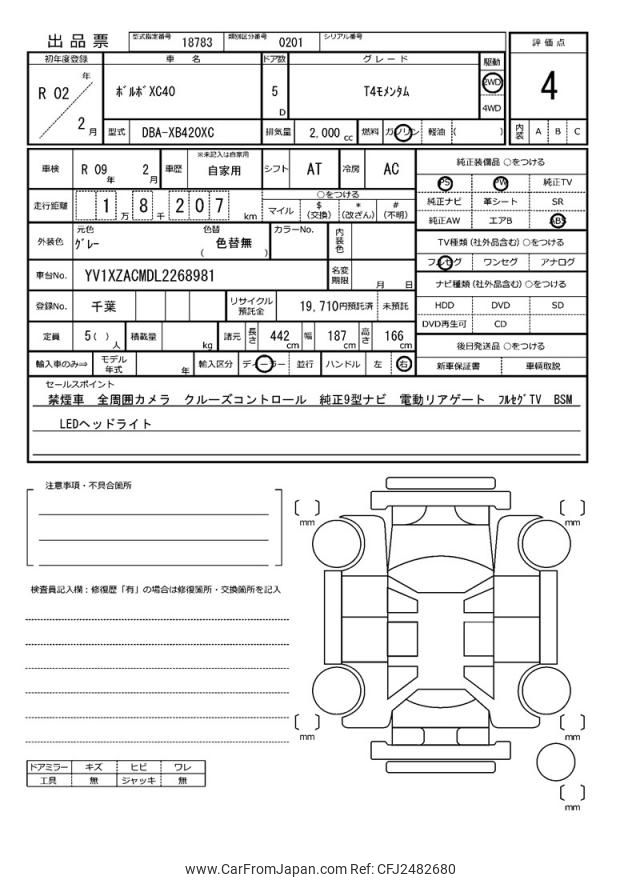 出品票 型式指定番号 18783 類別区分番号 0201 シリアル番号
初年度登録 車名 ドア数 グレード 駆動 評価点
R 02 年 2 月 ﾎﾞﾙﾎﾞXC40 5 D T4ﾓﾒﾝﾀﾑ 2WD 4WD 4
型式 DBA-XB420XC 排気量 2,000 cc 燃料 ガソリン 軽油 ( ) 内装 A B C
車検 R 09 年 2 月 車歴 ※未記入は自家用 自家用 シフト AT 冷房 AC
純正装備品 ○をつける
PS PW 純正TV
純正ナビ 革シート SR
純正AW エアB ABS
走行距離 1 万 8 千 2 0 7 km
○をつける
マイル $(交換) *(改ざん) #(不明)
外装色 元色 ｸﾞﾚｰ 色替 色替無 ( ) カラーNo. 内装色
TV種類 (社外品含む) ○をつける
フルセグ ワンセグ アナログ
車台No. YV1XZACMDL2268981 名変期限 月 日
ナビ種類 (社外品含む) ○をつける
HDD DVD SD
DVD再生可 CD
登録No. 千葉 リサイクル預託金 19,710円預託済 未預託
定員 5 ( ) 人 積載量 kg 諸元 長さ 442 cm 幅 187 cm 高さ 166 cm
後日発送品 ○をつける
新車保証書 車輌取説
輸入車のみ⇒ モデル年式 年 輸入区分 ディーラー 並行 ハンドル 左 右
セールスポイント
禁煙車 全周囲カメラ クルーズコントロール 純正9型ナビ 電動リアゲート ﾌﾙｾｸﾞTV BSM
LEDヘッドライト
注意事項・不具合箇所
検査員記入欄：修復歴「有」の場合は修復箇所・交換箇所を記入
[ ] mm [ ] mm
[ ] mm [ ] mm
[ ] mm
ドアミラー キズ ヒビ ワレ
工具 無 ジャッキ 無
www.CarFromJapan.com Ref: CFJ2482680